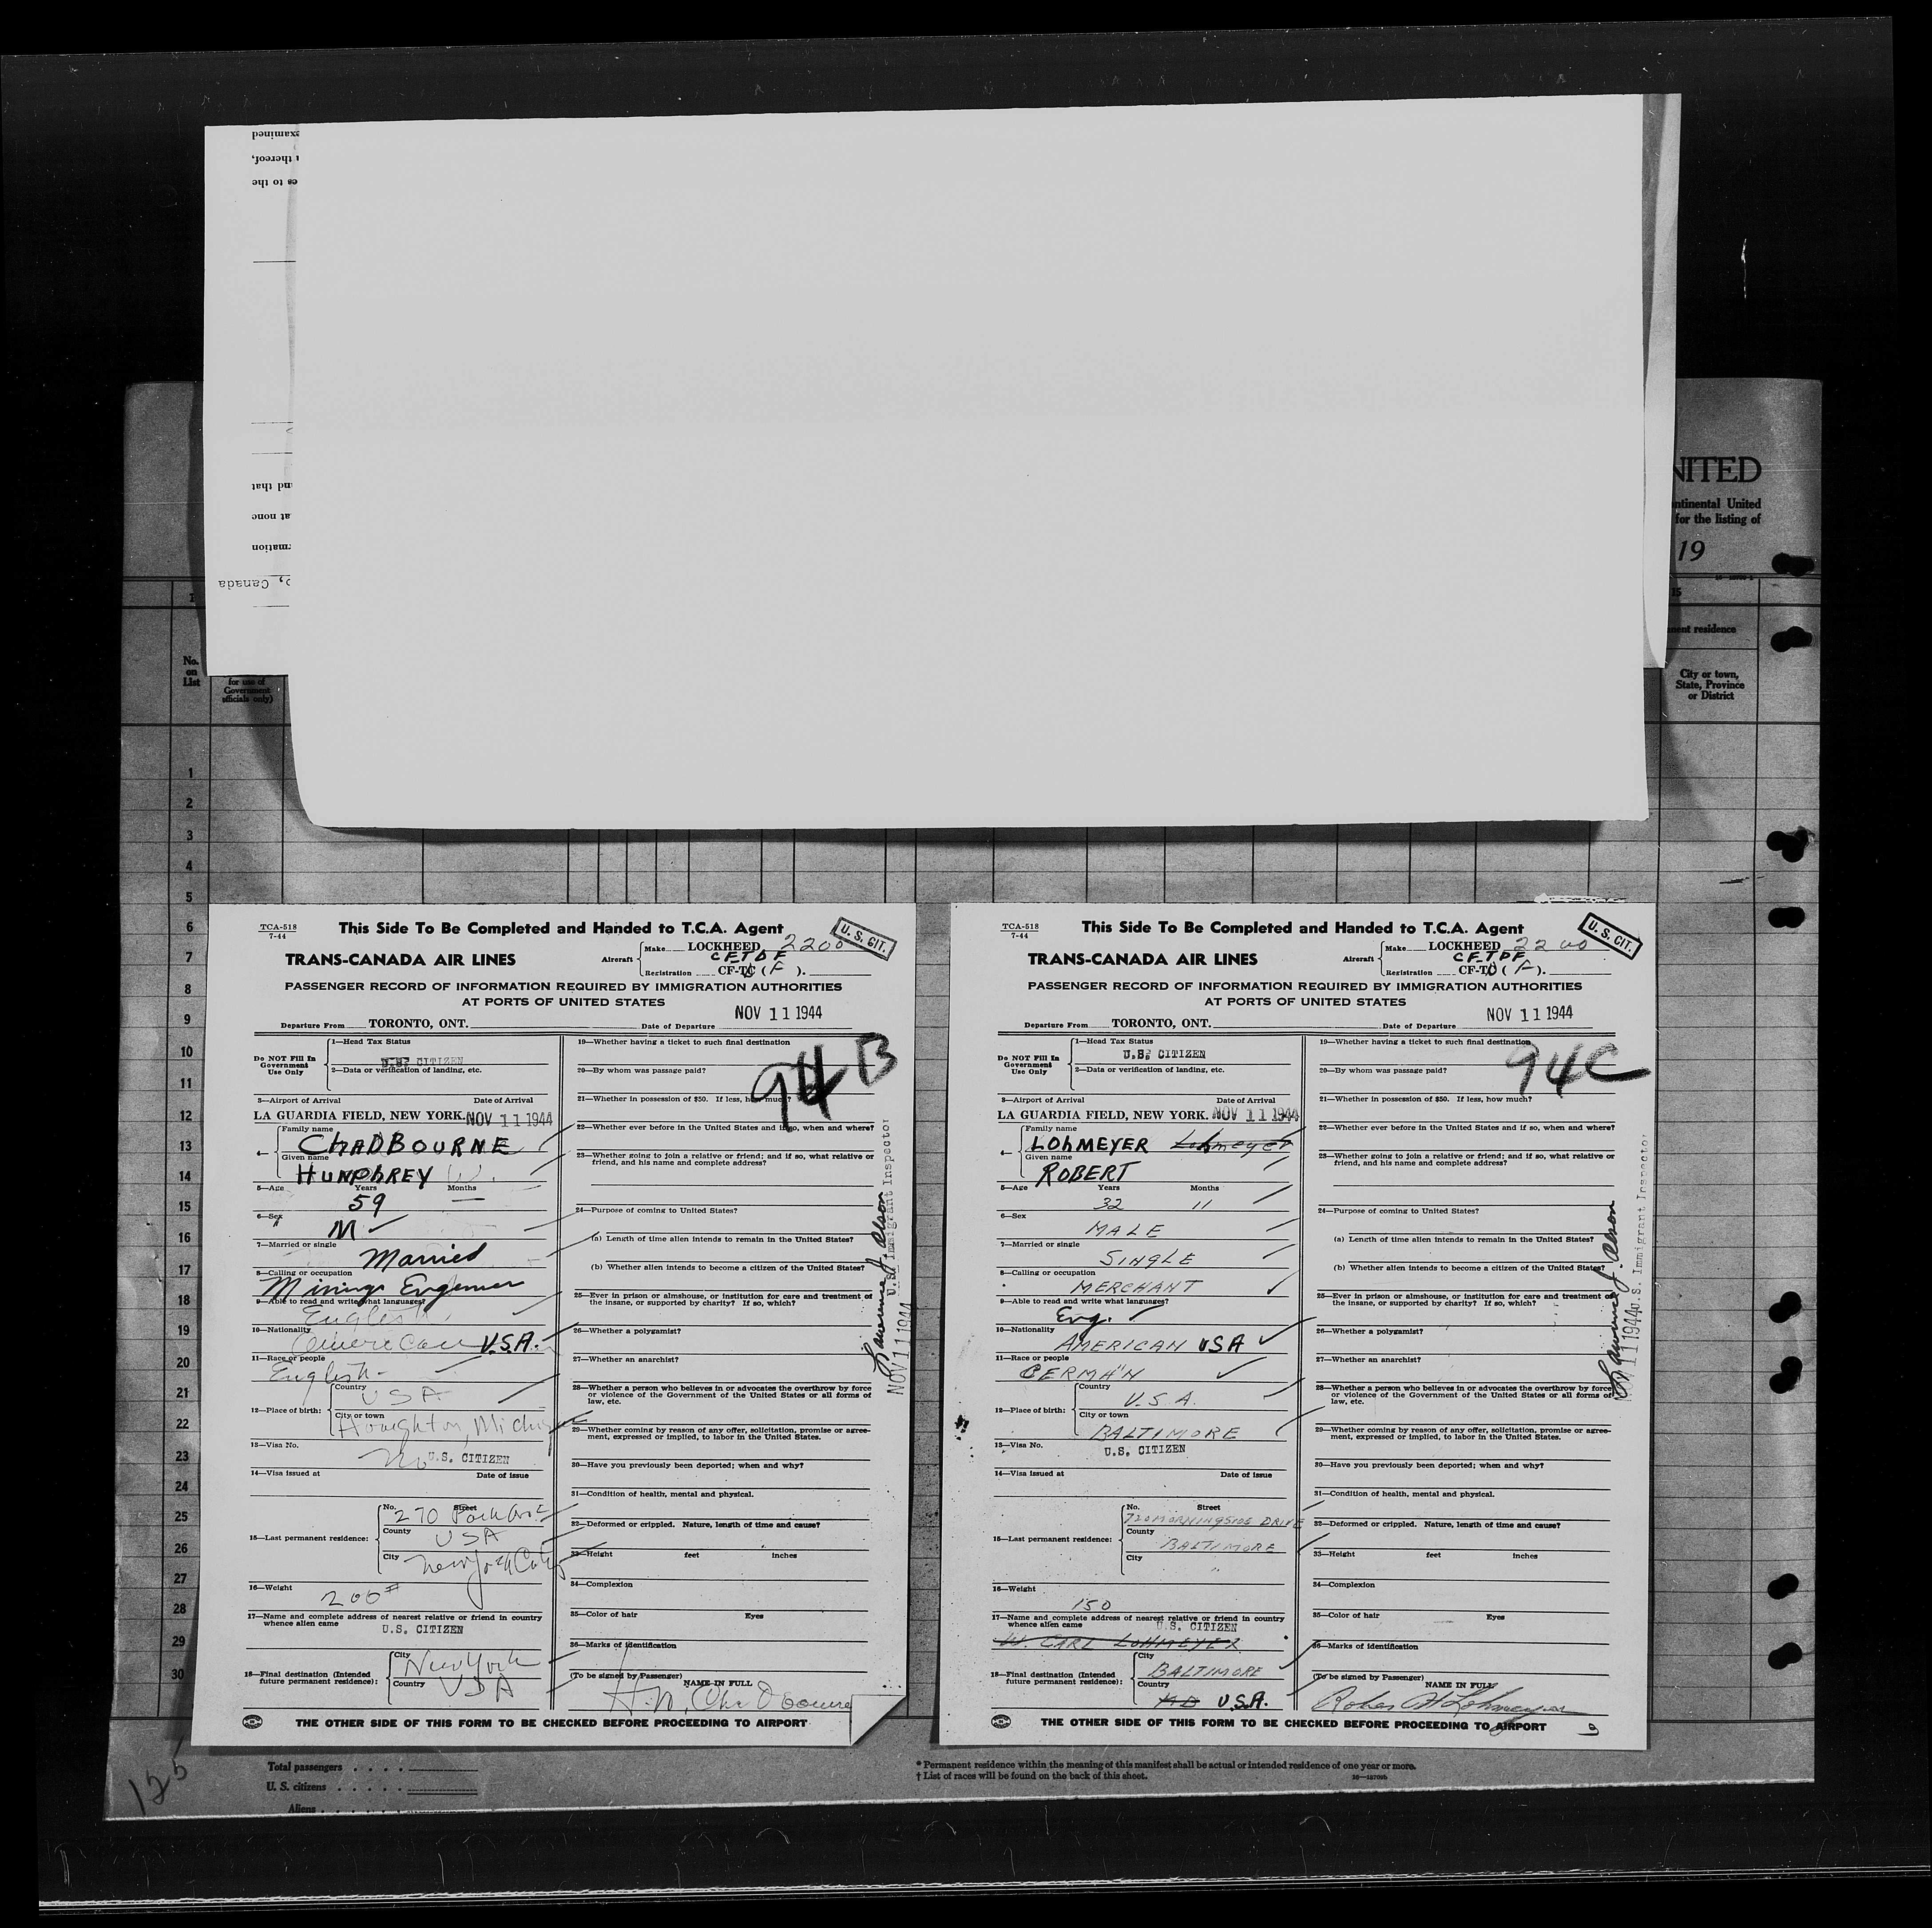 examined
thereof,
es to the
nd that
at none
rmation
o, Canada
NITED
ntinental United
for the listing of
19
15
nent residence
No.
on
List
for use of
Government
officials only)
City or town,
State, Province
or District
1
2
3
4
5
6
7
8
9
10
11
12
13
14
15
16
17
18
19
20
21
22
23
24
25
26
27
28
29
30
TCA-518
7-44
This Side To Be Completed and Handed to T.C.A. Agent
U. S. CIT.
TRANS-CANADA AIR LINES
Aircraft
Make LOCKHEED 2200
CFTDF
Registration CF-TC (F).
PASSENGER RECORD OF INFORMATION REQUIRED BY IMMIGRATION AUTHORITIES
AT PORTS OF UNITED STATES
NOV 11 1944
Departure From TORONTO, ONT. Date of Departure
Do NOT Fill In
Government
Use Only
1—Head Tax Status
U.S. CITIZEN
2—Data or verification of landing, etc.
3—Airport of Arrival Date of Arrival
LA GUARDIA FIELD, NEW YORK. NOV 11 1944
4—
Family name
ChADBOURNE
Given name
HUMPhREY W.
5—Age Years Months
59 —
6—Sex
M
7—Married or single
Married
8—Calling or occupation
Mining Engineer
9—Able to read and write what languages?
English
10—Nationality
American U.S.A.
11—Race or people
English
12—Place of birth:
Country
USA
City or town
Houghton, Michigan
13—Visa No.
No U.S. CITIZEN
14—Visa issued at Date of issue
15—Last permanent residence:
No. Street
270 Park Ave
County
USA
City
New York City
16—Weight
200#
17—Name and complete address of nearest relative or friend in country
whence alien came
U.S. CITIZEN
18—Final destination (Intended
future permanent residence):
City
New York
Country
USA
19—Whether having a ticket to such final destination
94B
20—By whom was passage paid?
21—Whether in possession of $50. If less, how much?
22—Whether ever before in the United States and if so, when and where?
23—Whether going to join a relative or friend; and if so, what relative or
friend, and his name and complete address?
24—Purpose of coming to United States?
(a) Length of time alien intends to remain in the United States?
(b) Whether alien intends to become a citizen of the United States?
25—Ever in prison or almshouse, or institution for care and treatment of
the insane, or supported by charity? If so, which?
26—Whether a polygamist?
27—Whether an anarchist?
28—Whether a person who believes in or advocates the overthrow by force
or violence of the Government of the United States or all forms of
law, etc.
29—Whether coming by reason of any offer, solicitation, promise or agree-
ment, expressed or implied, to labor in the United States.
30—Have you previously been deported; when and why?
31—Condition of health, mental and physical.
32—Deformed or crippled. Nature, length of time and cause?
33—Height feet inches
34—Complexion
35—Color of hair Eyes
36—Marks of identification
(To be signed by Passenger)
NAME IN FULL
H. W. Chadbourne
Lawrence J. Olson
U.S. Immigrant Inspector
NOV 11 1944
THE OTHER SIDE OF THIS FORM TO BE CHECKED BEFORE PROCEEDING TO AIRPORT
TCA-518
7-44
This Side To Be Completed and Handed to T.C.A. Agent
U. S. CIT.
TRANS-CANADA AIR LINES
Aircraft
Make LOCKHEED 2200
CFTDF
Registration CF-TC (F).
PASSENGER RECORD OF INFORMATION REQUIRED BY IMMIGRATION AUTHORITIES
AT PORTS OF UNITED STATES
NOV 11 1944
Departure From TORONTO, ONT. Date of Departure
Do NOT Fill In
Government
Use Only
1—Head Tax Status
U.S. CITIZEN
2—Data or verification of landing, etc.
3—Airport of Arrival Date of Arrival
LA GUARDIA FIELD, NEW YORK. NOV 11 1944
4—
Family name
LOhMEYER Lohmeyer
Given name
ROBERT
5—Age Years Months
32 11
6—Sex
MALE
7—Married or single
SINGLE
8—Calling or occupation
MERCHANT
9—Able to read and write what languages?
Eng.
10—Nationality
AMERICAN USA
11—Race or people
GERMAN
12—Place of birth:
Country
U.S.A.
City or town
BALTIMORE
13—Visa No.
U.S. CITIZEN
14—Visa issued at Date of issue
15—Last permanent residence:
No. Street
720 MORNINGSIDE DRIVE
County
BALTIMORE
City
16—Weight
150
17—Name and complete address of nearest relative or friend in country
whence alien came
U.S. CITIZEN
W. CARL LOHMEYER
18—Final destination (Intended
future permanent residence):
City
BALTIMORE
Country
MD U.S.A.
19—Whether having a ticket to such final destination
94C
20—By whom was passage paid?
21—Whether in possession of $50. If less, how much?
22—Whether ever before in the United States and if so, when and where?
23—Whether going to join a relative or friend; and if so, what relative or
friend, and his name and complete address?
24—Purpose of coming to United States?
(a) Length of time alien intends to remain in the United States?
(b) Whether alien intends to become a citizen of the United States?
25—Ever in prison or almshouse, or institution for care and treatment of
the insane, or supported by charity? If so, which?
26—Whether a polygamist?
27—Whether an anarchist?
28—Whether a person who believes in or advocates the overthrow by force
or violence of the Government of the United States or all forms of
law, etc.
29—Whether coming by reason of any offer, solicitation, promise or agree-
ment, expressed or implied, to labor in the United States.
30—Have you previously been deported; when and why?
31—Condition of health, mental and physical.
32—Deformed or crippled. Nature, length of time and cause?
33—Height feet inches
34—Complexion
35—Color of hair Eyes
36—Marks of identification
(To be signed by Passenger)
NAME IN FULL
Robert H Lohmeyer
Lawrence J. Olson
U.S. Immigrant Inspector
NOV 11 1944
THE OTHER SIDE OF THIS FORM TO BE CHECKED BEFORE PROCEEDING TO AIRPORT
9
125
Total passengers
U. S. citizens
Aliens
* Permanent residence within the meaning of this manifest shall be actual or intended residence of one year or more.
† List of races will be found on the back of this sheet.